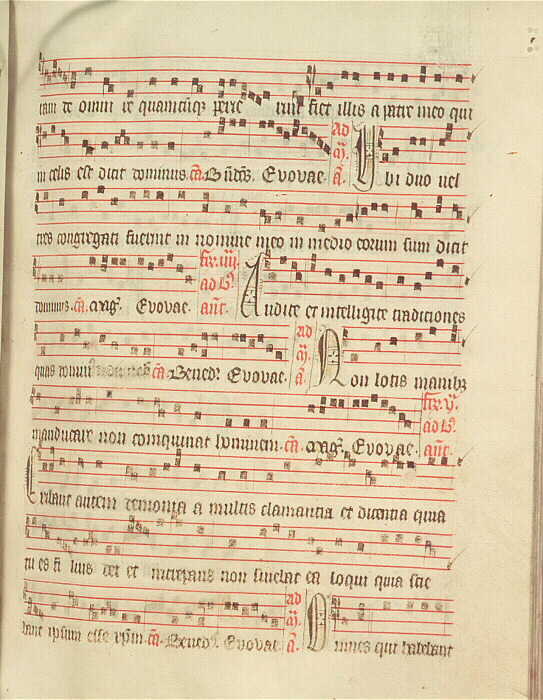 cam de omni re quamcūq; petie rint fiet illis a patre meo qui
in celis est dicit dominus. cā. Bn̄dc̄s. Evovae. ad m̄. a. Vbi duo uel
tres congregati fuerint in nomine meo in medio eorum sum dicit
dominus. cā. Mag̃. Evovae. fr̄. iiij. ad B̃. anc̄. Audite et intelligite traditiones
quas dominus cā. Bened̃. Evovae. ad m̄. a. Non lotis manibz
manducare non coinquinat hominem. cā. Mag̃. Evovae. fr̄. v. ad B̃. anc̄.
Exibant autem demonia a multis clamantia et dicentia quia
tu es fi lius dei et increpans non sinebat ea loqui quia scie
bant ipsum esse xp̄m. cā. Bened̃. Evovae. ad m̄. a. Omnes qui habebant